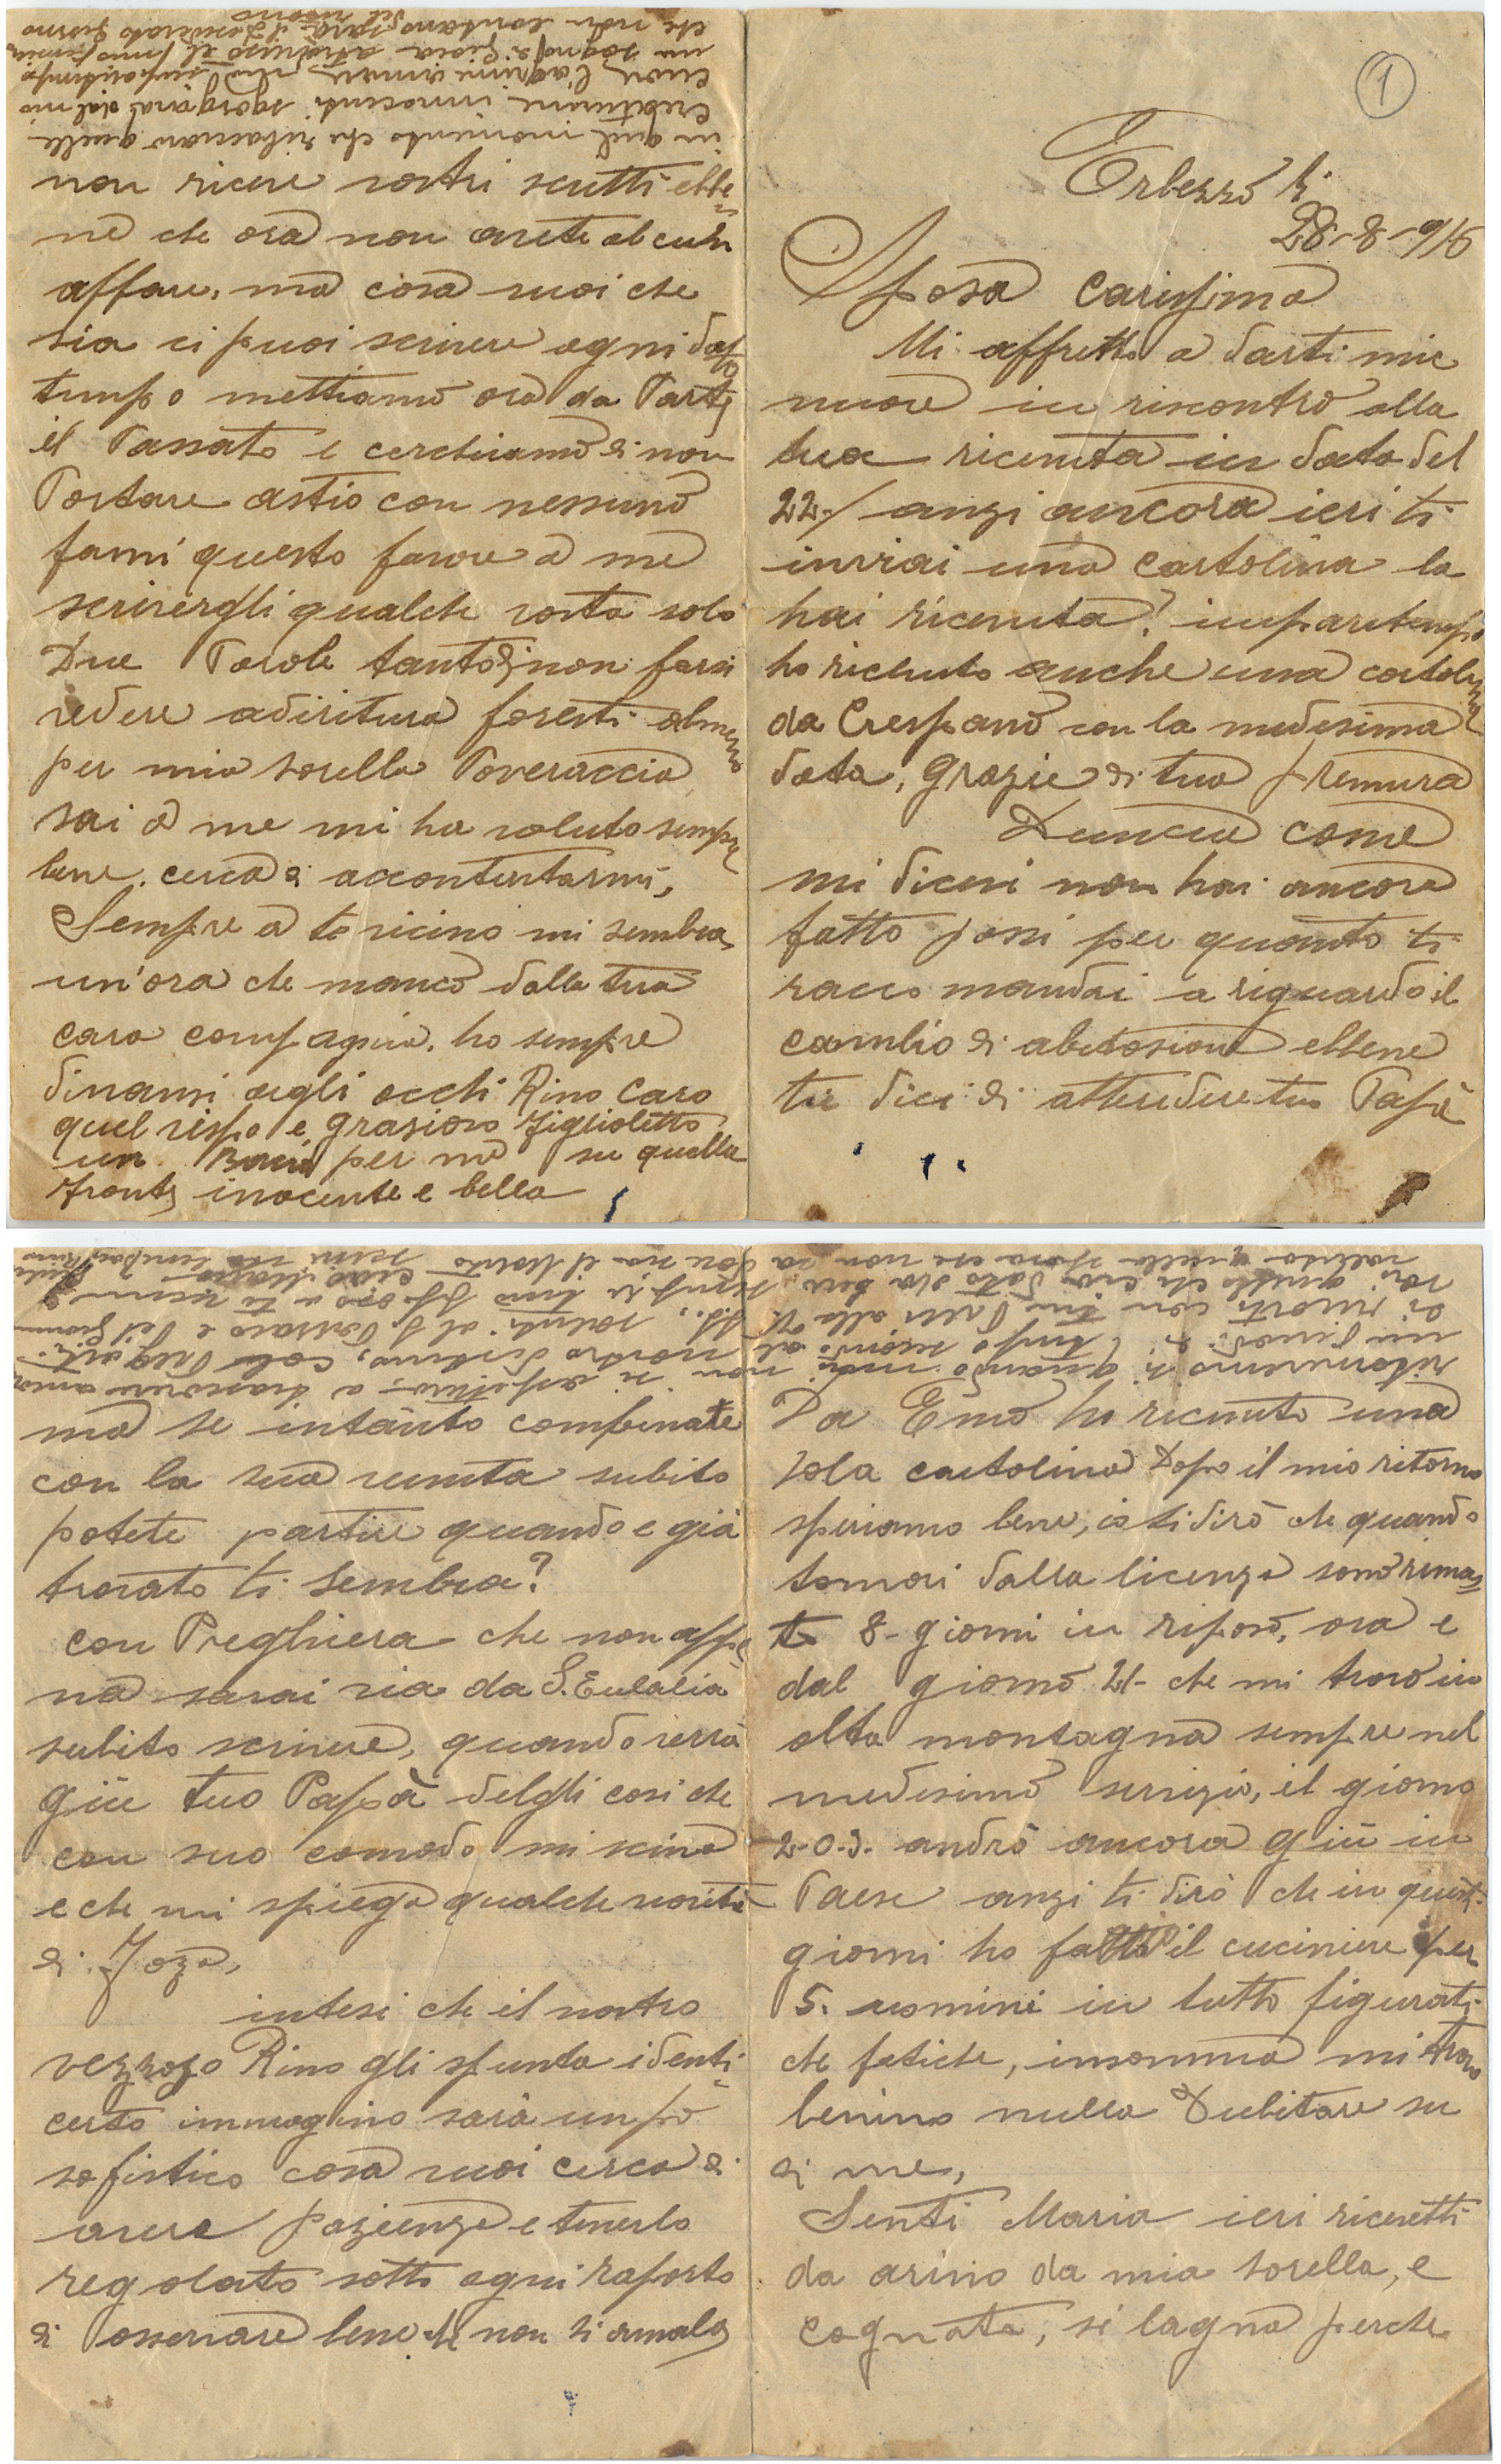 1
Erbezzo li
28-8-916
Sposa Carissima
Mi affretto a darti mie
nuove in riscontro alla
tua ricevuta in data del
22./ anzi ancora ieri ti
inviai una cartolina la
hai ricevuta? imparitempo
ho ricevuto anche una cartolina
da Crespano con la medesima
data, grazie di tua premura
Dunque come
mi dicevi non hai ancora
fatto passi per quanto ti
raccomandai a riguardo il
cambio di abitazione ebbene
tu dici di attendere tuo Papà
ma se intanto combinate
con la sua venuta subito
potete partire quando e già
trovato ti sembra?
con Preghiera che non appe
na sarai via da S. Eulalia
subito scrivere, quando verrà
giù tuo Papà delgli cosi che
con suo comodo mi scriva
e che mi spiega qualche novità
di Foza,
intesi che il nostro
vezzozo Rino gli spunta i denti
certo immagino sarà un pò
sofistico cosa vuoi cerca di
avere pazienza e tenerlo
regolato sotto ogni raporto
di osservare bene che non si amala
Da Emo ho ricevuto una
sola cartolina Dopo il mio ritorno
speriamo bene, io ti dirò che quando
tornai dalla licenza sono rimas
to 8- giorni in riposo, ora e
dal giorno 21- che mi trovo in
alta montagna sempre nel
medesimo servizio, il giorno
2. o 3. andrò ancora giù in
Paese anzi ti dirò che in questi
giorni ho fatto il cuciniere per
5. uomini in tutto figurati
che fatiche, insomma mi trovo
benino nulla Dubitare su
di me,
Senti Maria ieri ricevetti
da arino da mia sorella, e
cognata, si lagna perche
non riceve vostri scritti ebbe
ne che ora non avete alcun
affare, ma cosa vuoi che
sia ci puoi scrivere ogni dato
tempo mettiamo ora da Parte
il Passato e cerchiamo di non
Portare astio con nessuno
fami questo favore a me
scrivergli qualche volta solo
Due Parole tanto di non farci
vedere adiritura foresti almeno
per mia sorella Poveraccia
sai a me mi ha voluto sempre
bene. cerca di accontentarmi,
Sempre a te vicino mi sembra
un'ora che manco dalla tua
cara compagnia. ho sempre
dinanzi agli occhi Rino Caro
quel vispo e grazioso figlioletto
un Bacio per me su quella
fronte inocente e bella
in quel momento che ribaciavo quelle
creaturine innocenti sgorgava dal mio
cuor l'agrime amare
un sogno di gioia
che non lontano sarà il desiderato giorno
del ritorno